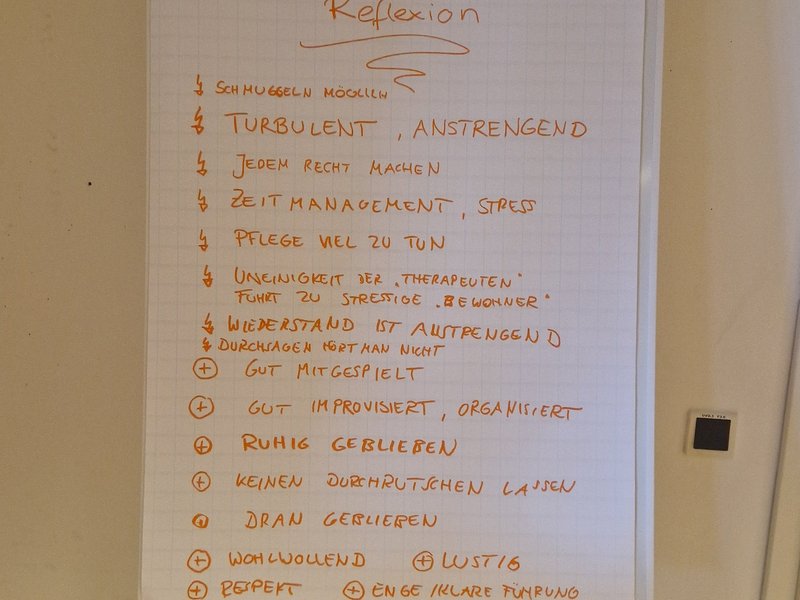 Reflexion
SCHMUGGELN MÖGLICH
TURBULENT, ANSTRENGEND
JEDEM RECHT MACHEN
ZEITMANAGEMENT, STRESS
PFLEGE VIEL ZU TUN
UNEINIGKEIT DER „THERAPEUTEN"
FÜHRT ZU STRESSIGE „BEWOHNER"
WIEDERSTAND IST ANSTRENGEND
DURCHSAGEN HÖRT MAN NICHT
+ GUT MITGESPIELT
+ GUT IMPROVISIERT, ORGANISIERT
+ RUHIG GEBLIEBEN
+ KEINEN DURCHRUTSCHEN LASSEN
DRAN GEBLIEBEN
+ WOHLWOLLEND + LUSTIG
+ RESPEKT + ENGE / KLARE FÜHRUNG